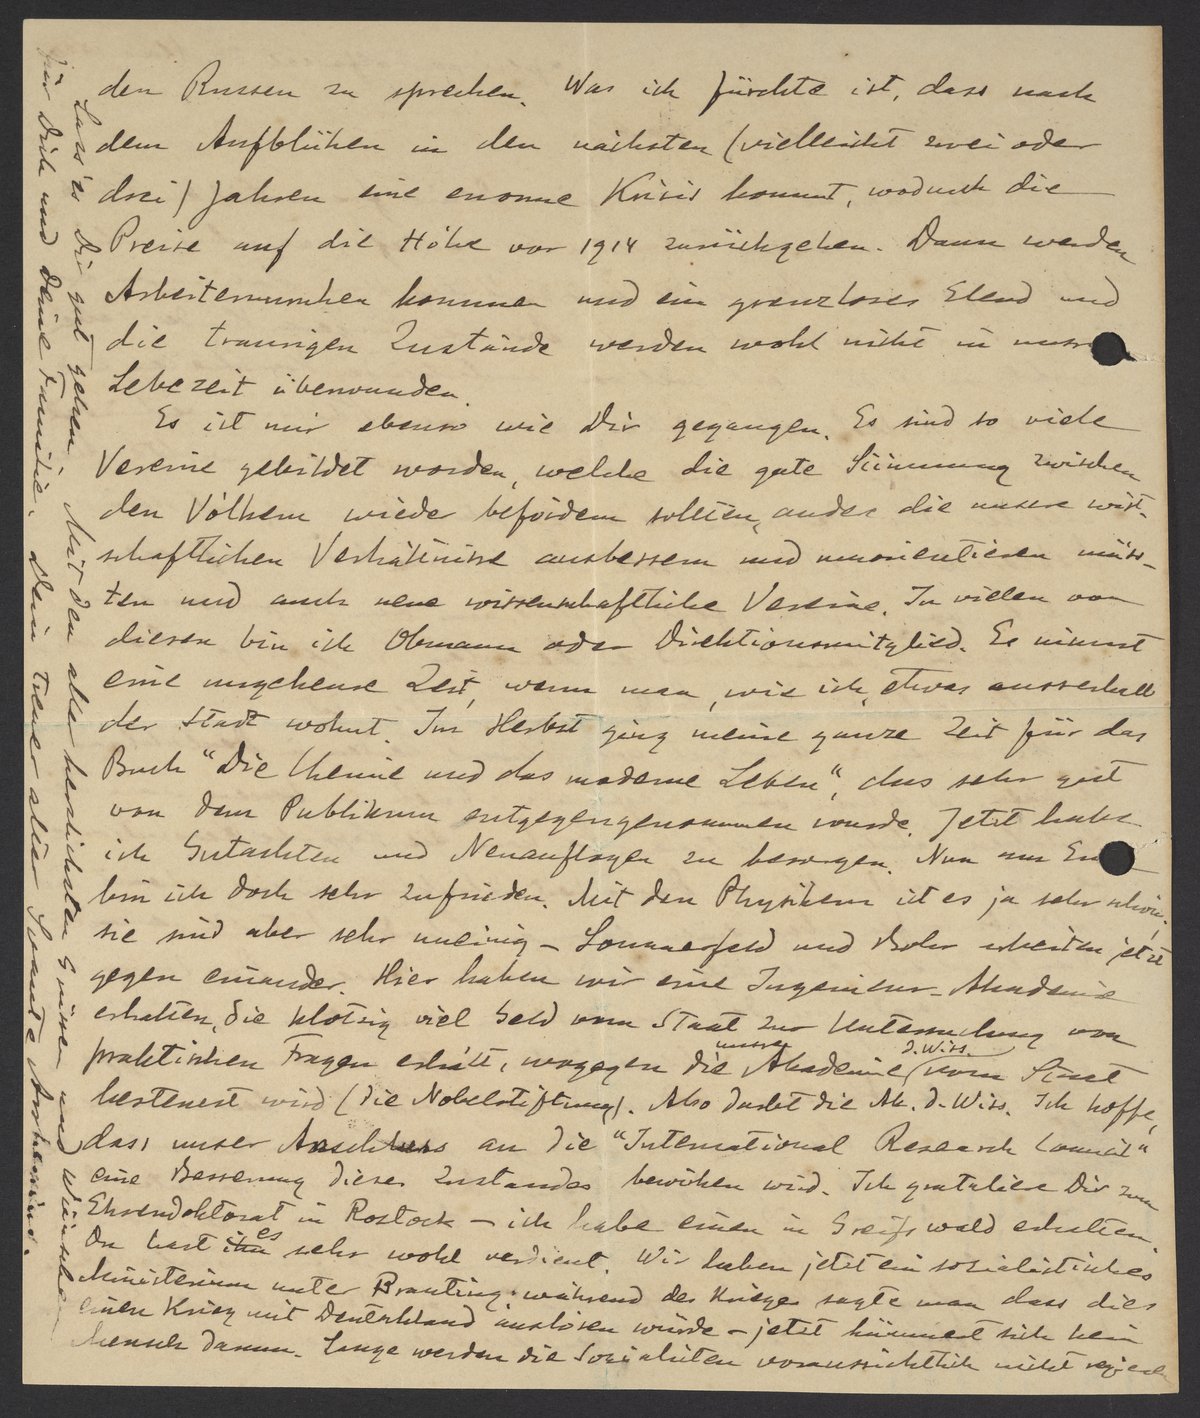 den Russen zu sprechen. Was ich fürchte ist, dass nach
dem Aufblühen in den nächsten (vielleicht zwei oder
drei) Jahren eine enorme Krisis kommt, wodurch die
Preise auf die Höhe vor 1914 zurückgehen. Dann werden
Arbeiterunruhen kommen und ein grenzloses Elend und
die traurigen Zustände werden wohl nicht in
Lebezeit überwunden.
Es ist mir ebenso wie Dir gegangen. Es sind so viele
Vereine gebildet worden, welche die gute Stimmung zwischen
den Völkern wieder befördern sollten, andere die unsere wirt-
schaftlichen Verhältnisse ausbessern und umorientieren müss-
ten und auch neue wissenschaftliche Vereine. In vielen von
diesen bin ich Obmann oder Direktionsmitglied. Es nimmt
eine ungeheure Zeit, wenn man, wie ich, etwas ausserhalb
der Stadt wohnt. Im Herbst ging meine ganze Zeit für das
Buch "Die Chemie und das moderne Leben", das sehr gut
von dem Publikum entgegengenommen wurde. Jetzt habe
ich Gutachten und Neuauflagen zu besorgen. Nun am
bin ich doch sehr zufrieden. Mit den Physikern ist es ja sehr schön,
sie sind aber sehr uneinig – Sommerfeld und Bohr arbeiten jetzt
gegen einander. Hier haben wir eine Ingenieur-Akademie
erhalten, die klotzig viel Geld vom Staat zur Untersuchung von
praktischen Fragen erhält, wogegen die unsre Akademie (d. Wiss. vom Staat
besteuert wird (die Nobelstiftung). Also darbt die Ak. d. Wiss. Ich hoffe,
dass unser Anschluss an die "International Research Council"
eine Besserung dieses Zustandes bewirken wird. Ich gratuliere Dir zum
Ehrendoktorat in Rostock – ich habe einen in Greifswald erhalten.
Du hast ihn es sehr wohl verdient. Wir haben jetzt ein sozialistisches
Ministerium unter Branting. während des Krieges sagte man dass dies
einen Krieg mit Deutschland auslösen würde – jetzt kümmert sich kein
Mensch darum. Lange werden die Sozialisten voraussichtlich nicht regieren
Lass es Dir gut gehen. Mit den aller herzlichsten Grüssen und Wünschen
für Dich und Deine Familie. Dein treuer alter Svante Arrhenius.